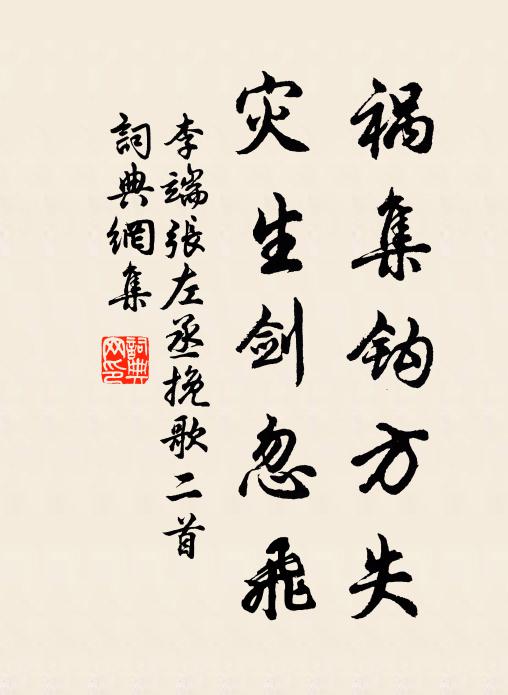 祸集钩方失
灾生剑忽飛
李端張左丞挽歌二首
詞典網集
詞典
网印